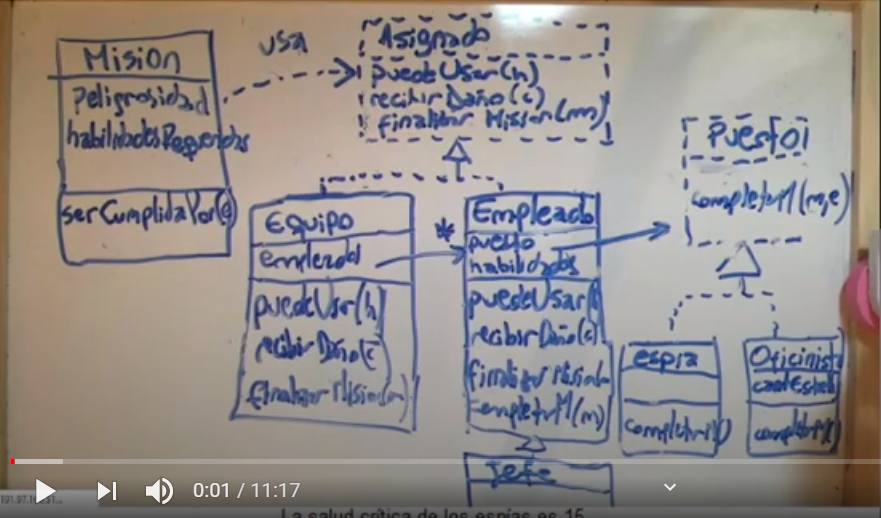 Mision
peligrosidad
habilidadesRequeridas
serCumplidaPor(e)
usa
Asignado
puedeUsar(h)
recibirDaño(c)
finalizar Mision(m)
Equipo
empleados
puedeUsar(h)
recibirDaño(c
finalizarMision(m)
*
Empleado
puesto
habilidades
puedeUsar(
recibirDaño(c)
finalizarMision
completarM(m)
Jefe
Puesto
completarM(m,e)
espia
completarM()
Oficinist
cantEstrell
completarM(
0:01 / 11:17
La salud crítica de los espías es 15